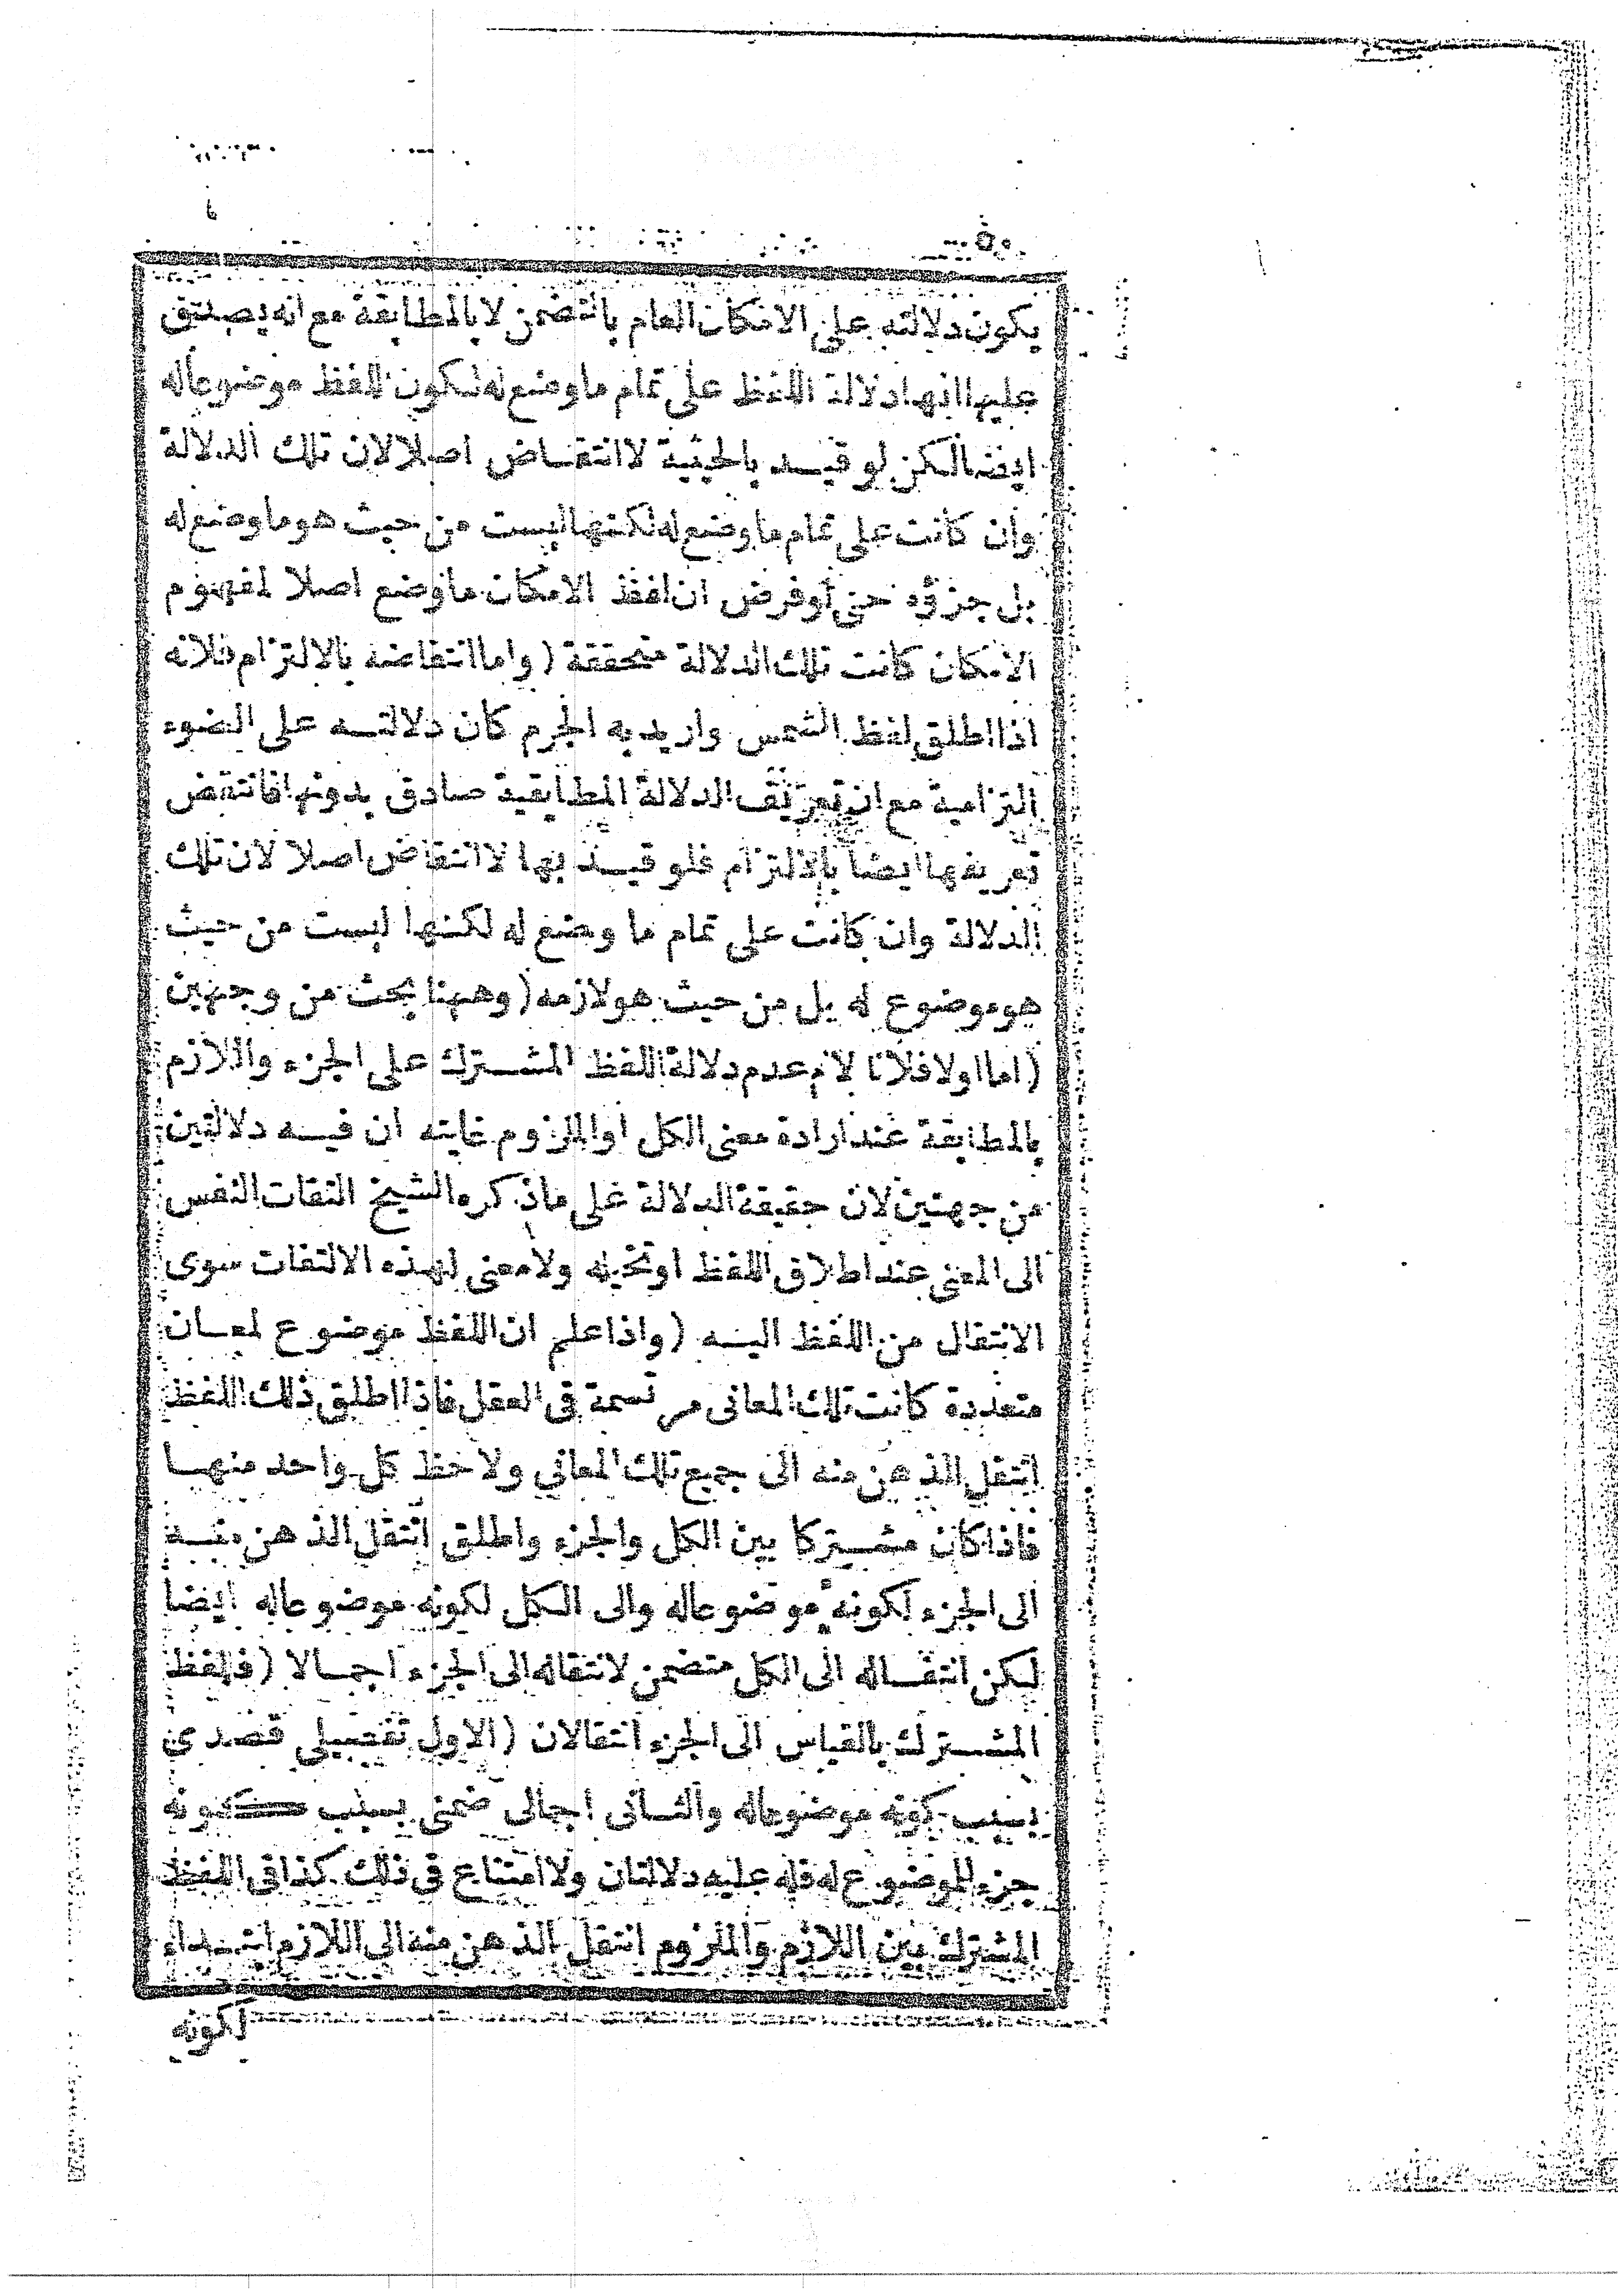 يكون دلالته على الامكان العام بالتضمن لا بالمطابقة مع انه يصدق
عليها انها دلالة اللفظ على تمام ما وضع له لكون اللفظ موضوعا له
ايضا لكن لو قيد بالحيثية لا انتقاض اصلا لان تلك الدلالة
وان كانت على تمام ما وضع له لكنها ليست من حيث هو ما وضع له
بل جزؤه حتى لو فرض ان لفظ الامكان ما وضع اصلا لمفهوم
الامكان كانت تلك الدلالة متحققة (واما انتقاضه بالالتزام فلانه
اذا اطلق لفظ الشمس واريد به الجرم كان دلالته على الضوء
التزامية مع ان تعريف الدلالة المطابقية صادق بدونها فانتقض
تعريفها ايضا بالالتزام فلو قيد بها لا انتقاض اصلا لان تلك
الدلالة وان كانت على تمام ما وضع له لكنها ليست من حيث
هو موضوع له بل من حيث هو لازمه (وههنا بحث من وجهين
(اما اولا فلانا لانم عدم دلالة اللفظ المشترك على الجزء واللازم
بالمطابقة عند ارادة معنى الكل او الملزوم غايته ان فيه دلالتين
من جهتين لان حقيقة الدلالة على ما ذكره الشيخ التفات النفس
الى المعنى عند اطلاق اللفظ او تخيله ولا معنى لهذه الالتفات سوى
الانتقال من اللفظ اليه (واذا علم ان اللفظ موضوع لمعان
متعددة كانت تلك المعانى مرتسمة فى العقل فاذا اطلق ذلك اللفظ
انتقل الذهن منه الى جميع تلك المعانى ولاحظ كل واحد منها
فاذا كان مشتركا بين الكل والجزء واطلق انتقل الذهن منه
الى الجزء لكونه موضوعا له والى الكل لكونه موضوعا له ايضا
لكن انتقاله الى الكل متضمن لانتقاله الى الجزء اجمالا (فللفظ
المشترك بالقياس الى الجزء انتقالان (الاول تفصيلى قصدى
بسبب كونه موضوعا له والثانى اجمالى ضمنى بسبب كونه
جزء الموضوع له فله عليه دلالتان ولا امتناع فى ذلك كذا فى اللفظ
المشترك بين اللازم والملزوم انتقل الذهن منه الى اللازم ابتداء
لكونه